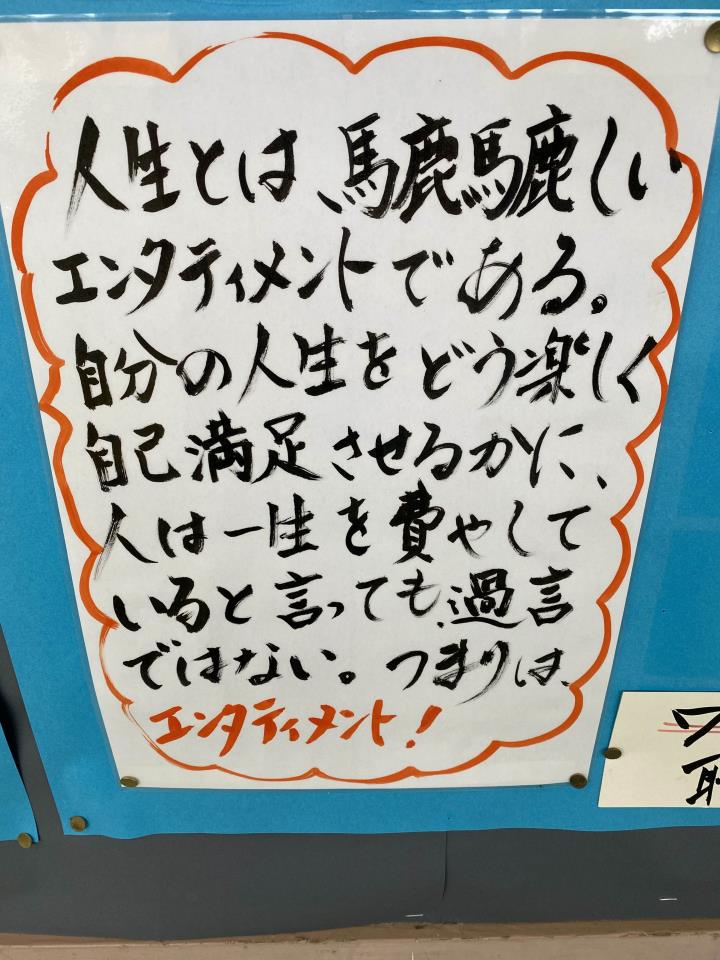 人生とは、馬鹿馬鹿しい
エンタティメントである。
自分の人生をどう楽しく
自己満足させるかに、
人は一生を費やして
いると言っても過言
ではない。つまりは、
エンタティメント!